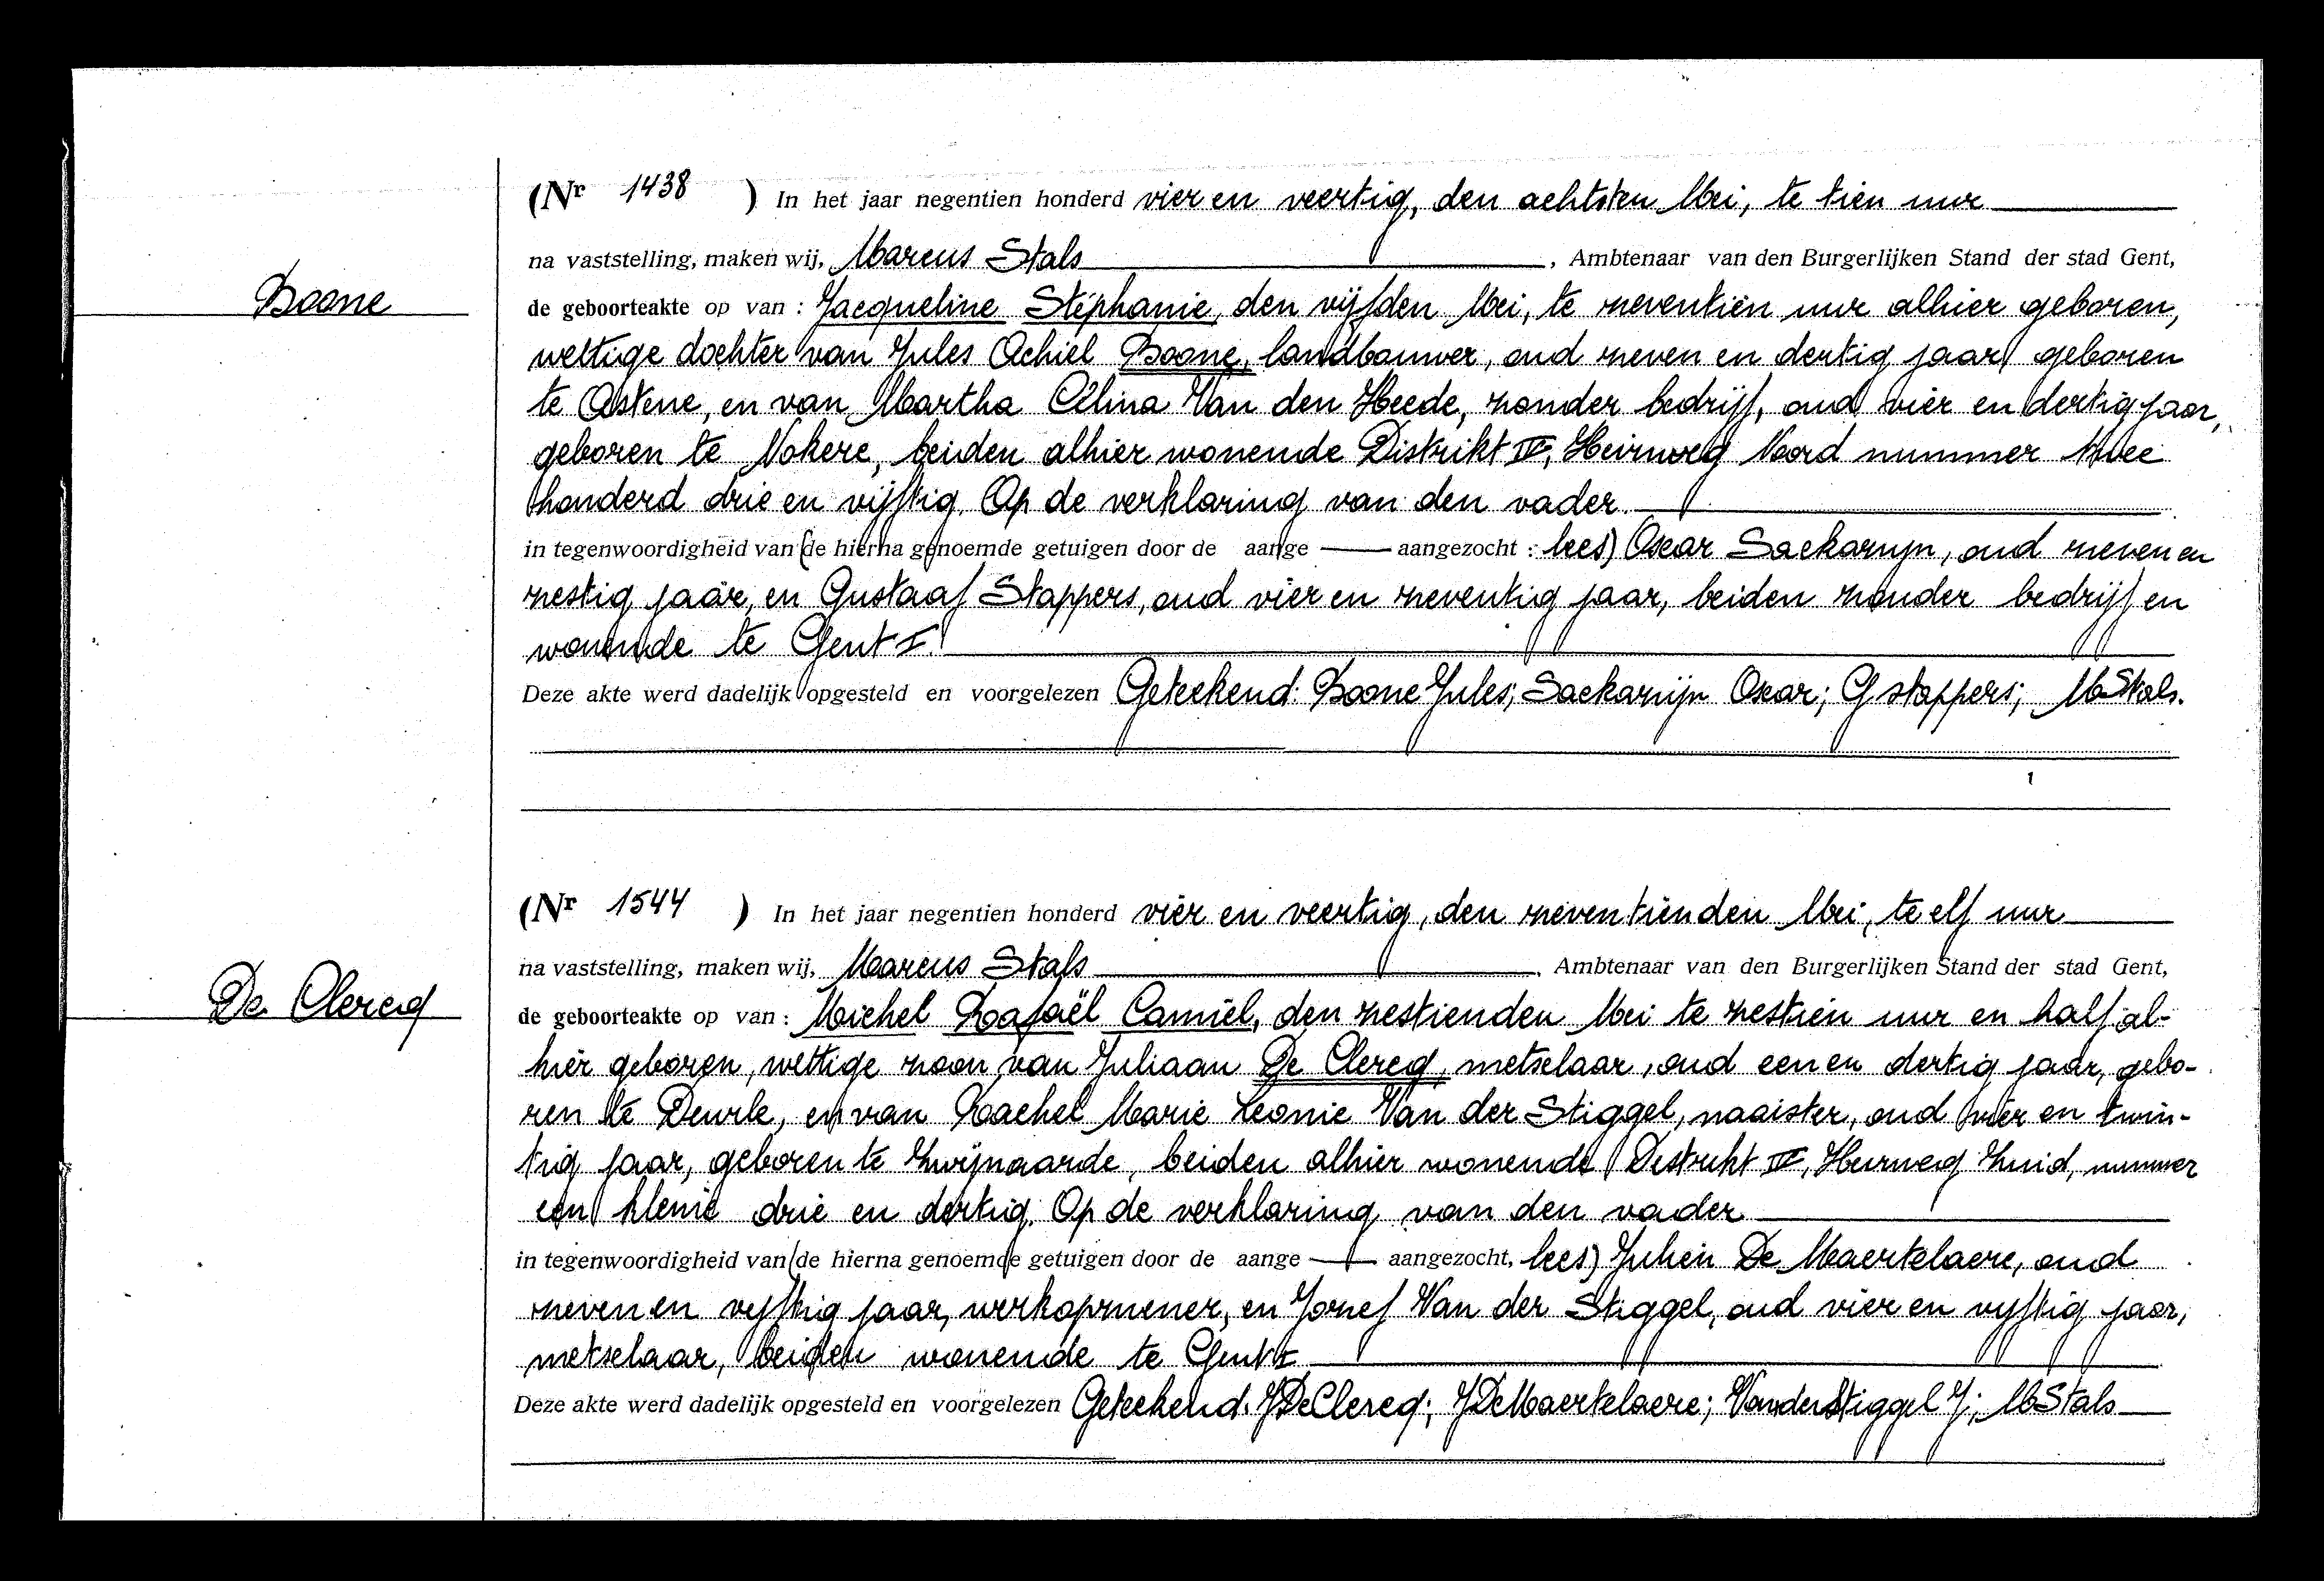 (Nr 1438 ) In het jaar negentien honderd vier en veertig, den achtsten Mei, te tien uur
na vaststelling, maken wij, Marcus Stals , Ambtenaar van den Burgerlijken Stand der stad Gent,
Boone
de geboorteakte op van : Jacqueline Stéphanie, den vijfden Mei, te zeventien uur alhier geboren,
wettige dochter van Jules Achiel Boone, landbouwer, oud zeven en dertig jaar, geboren
te Astene, en van Martha Célina Van den Heede, zonder bedrijf, oud vier en dertig jaar,
geboren te Nokere, beiden alhier wonende Distrikt IV, Heirweg Noord nummer twee
honderd drie en vijftig. Op de verklaring van den vader.
in tegenwoordigheid van (de hierna genoemde getuigen door de aange aangezocht : lees) Oscar Saekarnyn, oud zeven en
zestig jaar, en Gustaaf Stappers, oud vier en zeventig jaar, beiden zonder bedrijf en
wonende te Gent I.
Deze akte werd dadelijk opgesteld en voorgelezen Geteekend: Boone Jules; Saekarnijn Oscar; G stappers; M Stals.
(Nr 1544 ) In het jaar negentien honderd vier en veertig, den zeventienden Mei, te elf uur
na vaststelling, maken wij, Marcus Stals , Ambtenaar van den Burgerlijken Stand der stad Gent,
De Clercq
de geboorteakte op van : Michel Rafaël Camiel, den zestienden Mei te zestien uur en half al-
hier geboren, wettige zoon van Juliaan De Clercq, metselaar, oud een en dertig jaar, gebo-
ren te Deurle, en van Rachel Marie Leonie Van der Stiggel, naaister, oud vier en twin-
tig jaar, geboren te Zwijnaarde, beiden alhier wonende Distrikt IV, Heirweg Zuid, nummer
een kleine drie en dertig. Op de verklaring van den vader
in tegenwoordigheid van (de hierna genoemde getuigen door de aange aangezocht, lees) Julien De Maertelaere, oud
zeven en vijftig jaar, werkopziener, en Jozef Van der Stiggel, oud vier en vyftig jaar,
metselaar, beiden wonende te Gent I
Deze akte werd dadelijk opgesteld en voorgelezen Geteekend. J De Clercq; J De Maertelaere; Vanderstiggel J; M Stals